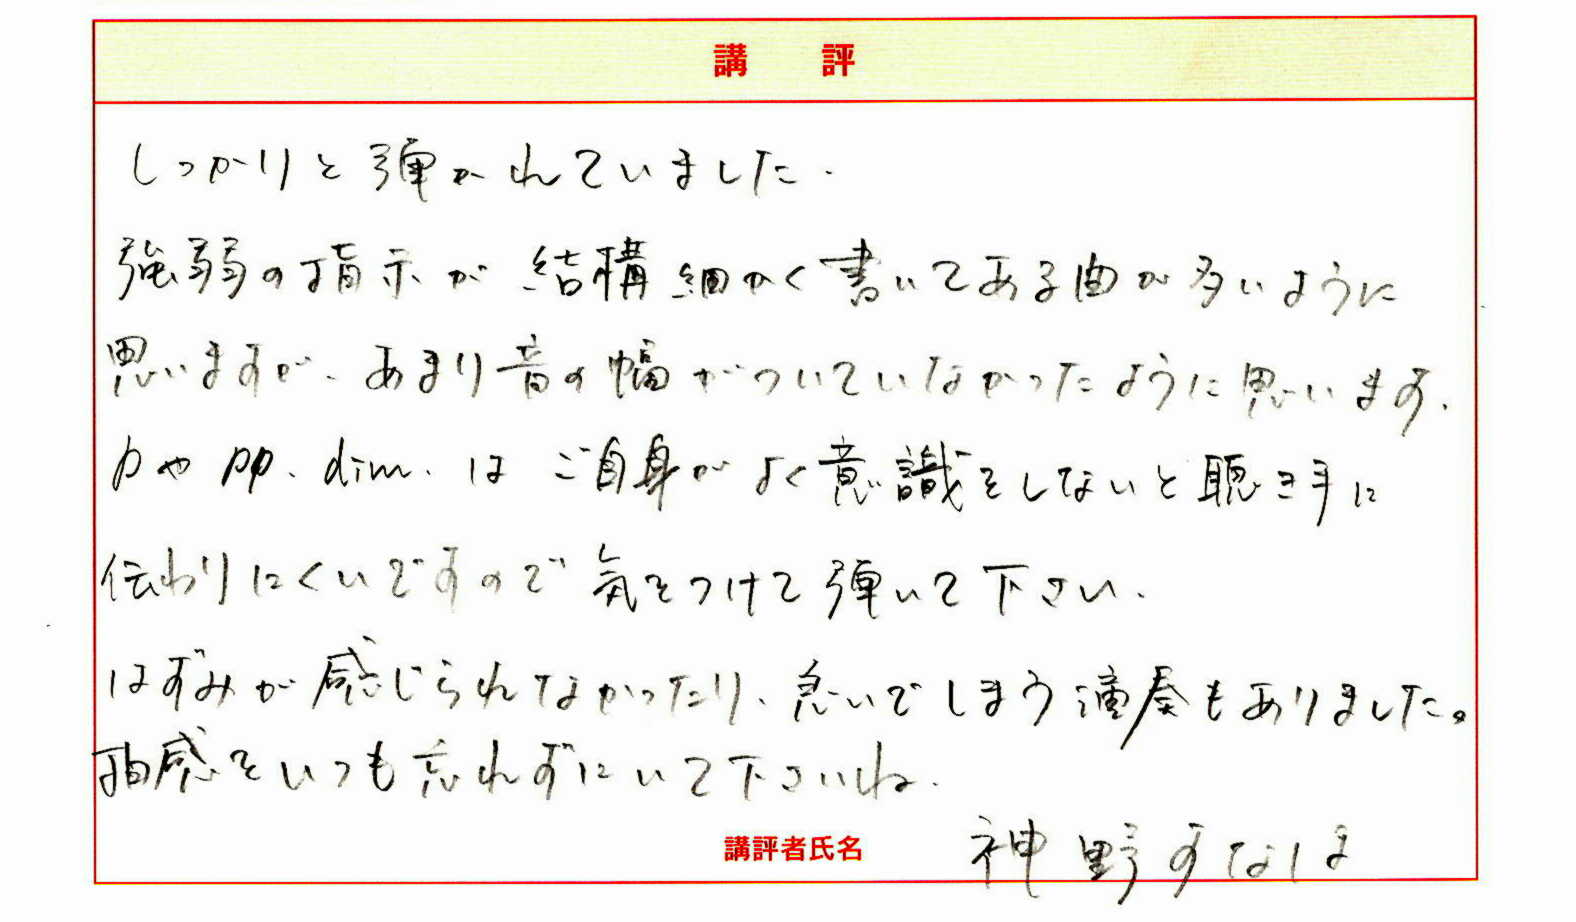 講 評
しっかりと弾かれていました.
強弱の指示が結構細かく書いてある曲が多いように
思いますが、あまり音の幅がついていなかったように思います.
pやpp、dim.はご自身がよく意識をしないと聴き手に
伝わりにくいですので気をつけて弾いて下さい.
はずみが感じられなかったり、急いでしまう演奏もありました。
拍感をいつも忘れずにいて下さいね.
講評者氏名 神野すなほ